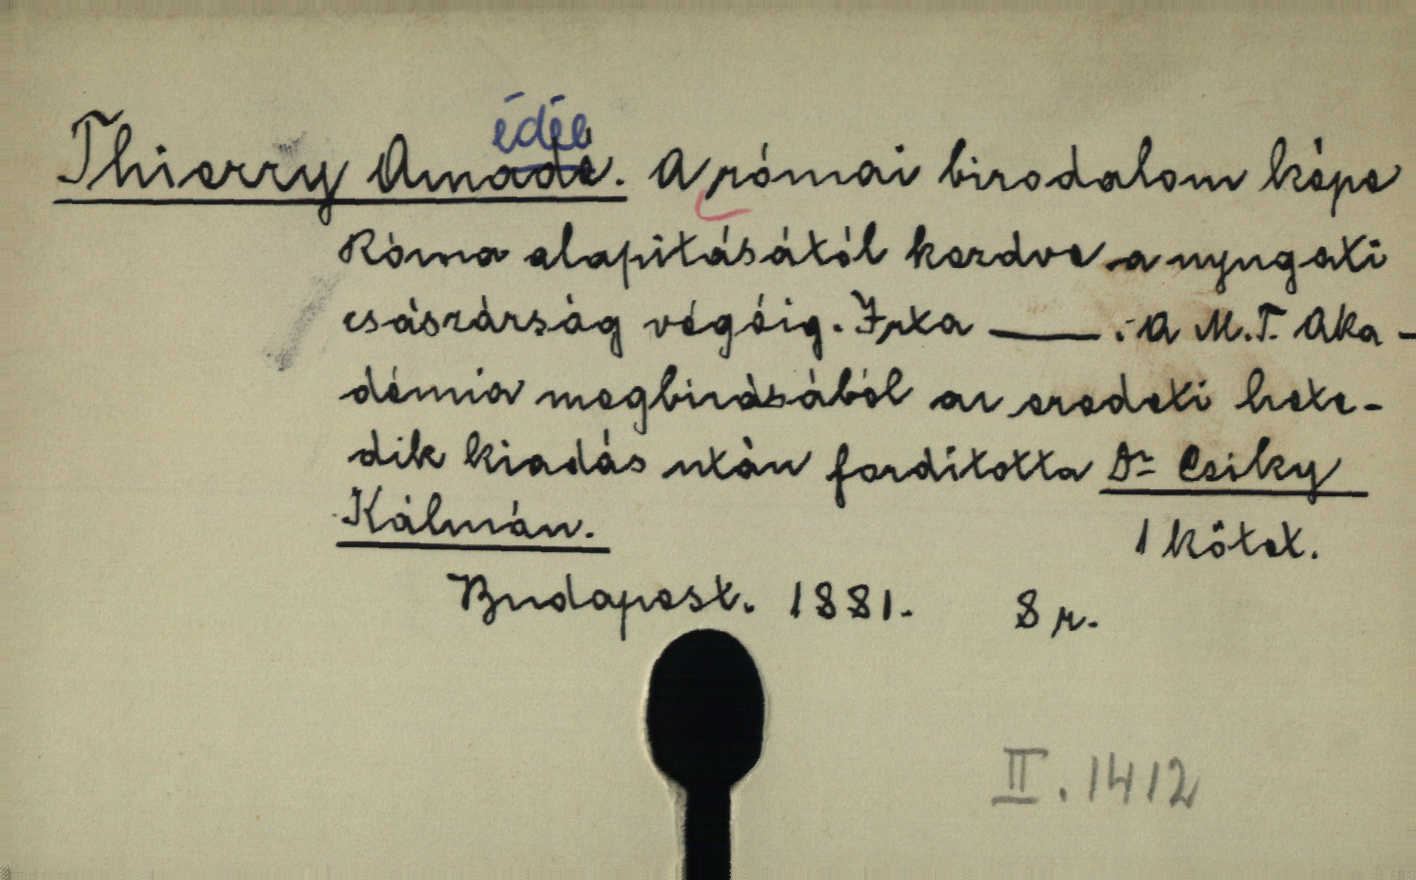 édée
Thierry Amade. A római birodalom képe
Róma alapitásától kezdve a nyugati
császárság végéig. Irta —— . A M. T. Aka-
démia megbizásából az eredeti hete-
dik kiadás után fordította Dr Csiky
Kálmán.
1 kötet.
Budapest. 1881. 8 r.
II. 1412